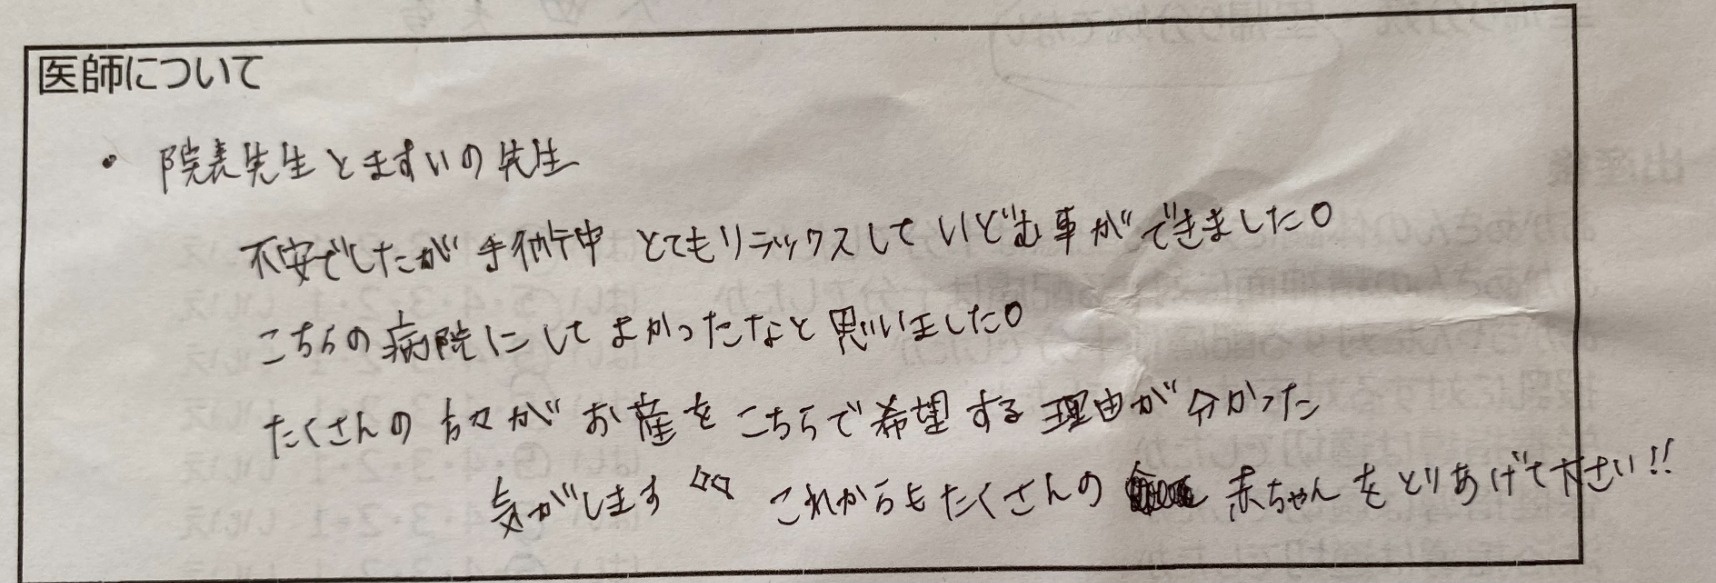 医師について
・院長先生とますいの先生
不安でしたが手術中とてもリラックスしていどむ事ができました。
こちらの病院にしてよかったなと思いました。
たくさんの方々がお産をこちらで希望する理由が分かった
気がします これからもたくさんの 赤ちゃんをとりあげて下さい!!